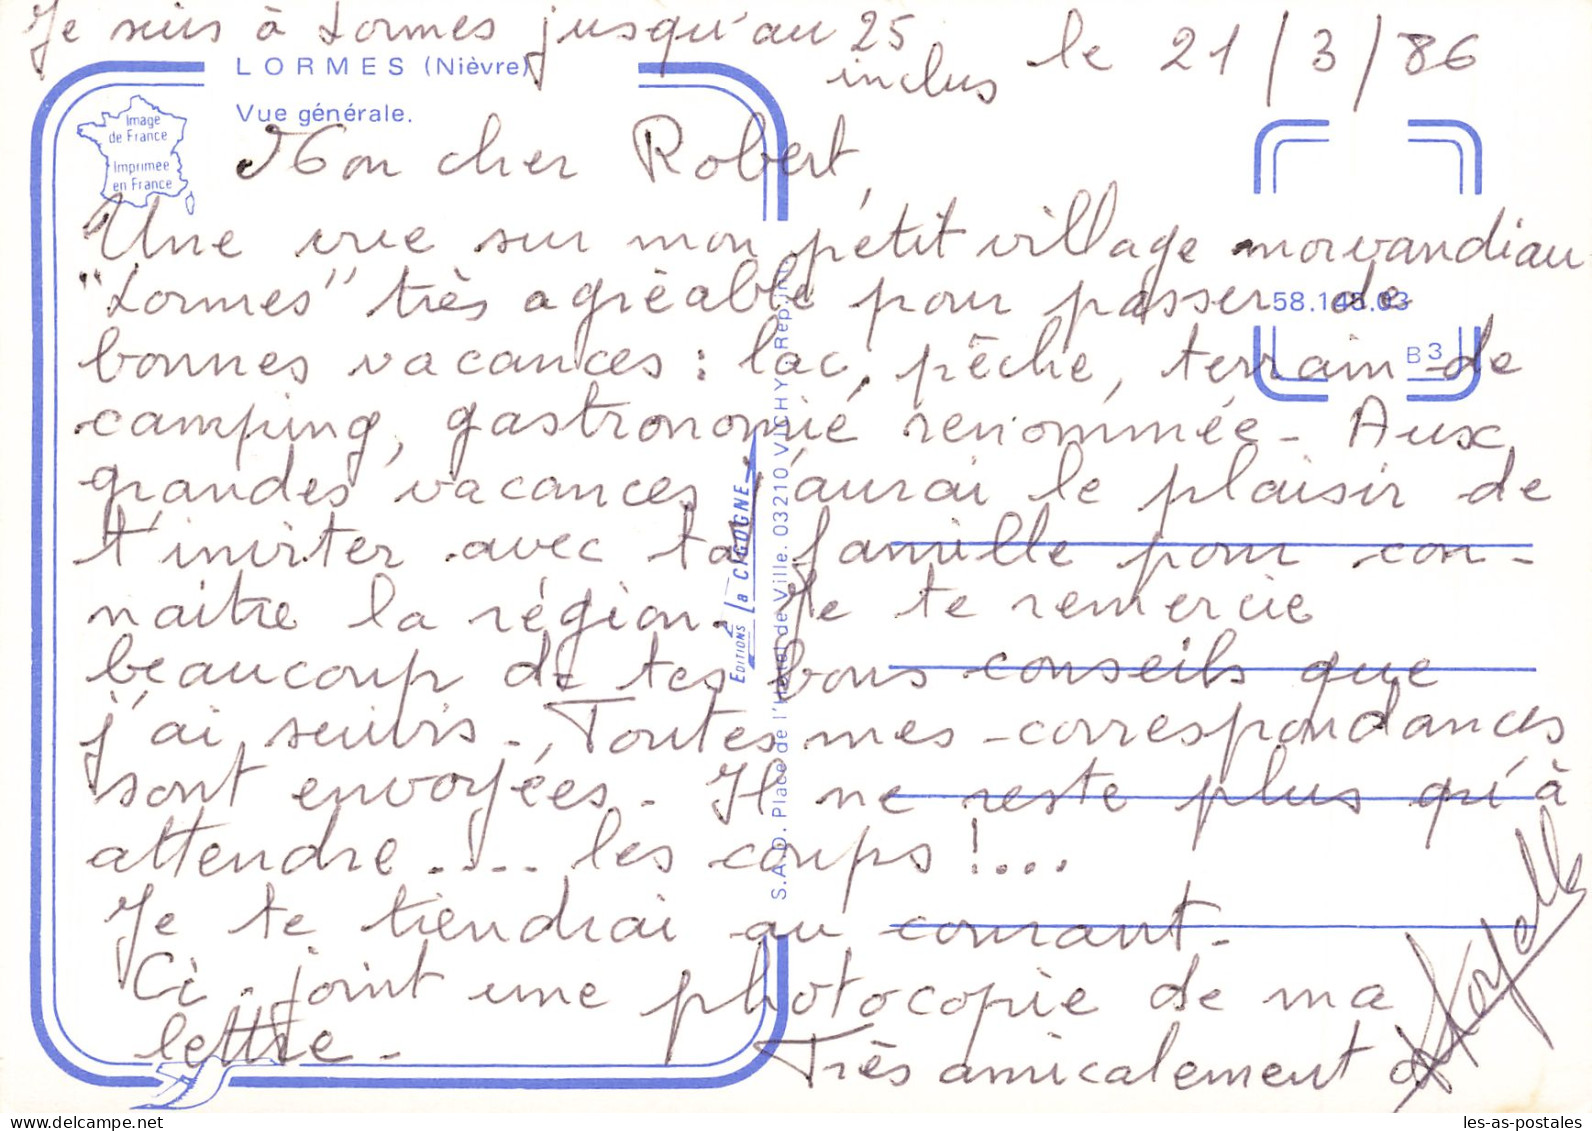 Je suis à Lormes jusqu'au 25
inclus
le 21/3/86
LORMES (Nièvre)
Vue générale.
Image
de France
Imprimée
en France
Mon cher Robert,
Une vue sur mon pétit village morvandiau
"Lormes" très agréable pour passer de
bonnes vacances : lac, pêche, terrain de
camping, gastronomie renommée - Aux
grandes vacances j'aurai le plaisir de
t'inviter avec ta famille pour con-
naitre la région. Je te remercie
beaucoup de tes bons conseils que
j'ai suivis. Toutes mes correspondances
sont envoyées. Il ne reste plus qu'à
attendre.... les coups !...
Je te tiendrai au courant.
Ci-joint une photocopie de ma
lettre.
Très amicalement
58.148.03
B 3
EDITIONS la CIGOGNE
S.A.D. Place de l'Hôtel de Ville. 03210 VICHY. Rep.Int
les-as-postales